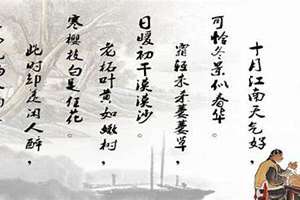 十月江南天气好，
可怜冬景似春华。
霜轻未杀萋萋草，
日暖初干漠漠沙。
老柘叶黄如嫩树，
寒樱枝白是狂花。
此时却羡闲人醉，